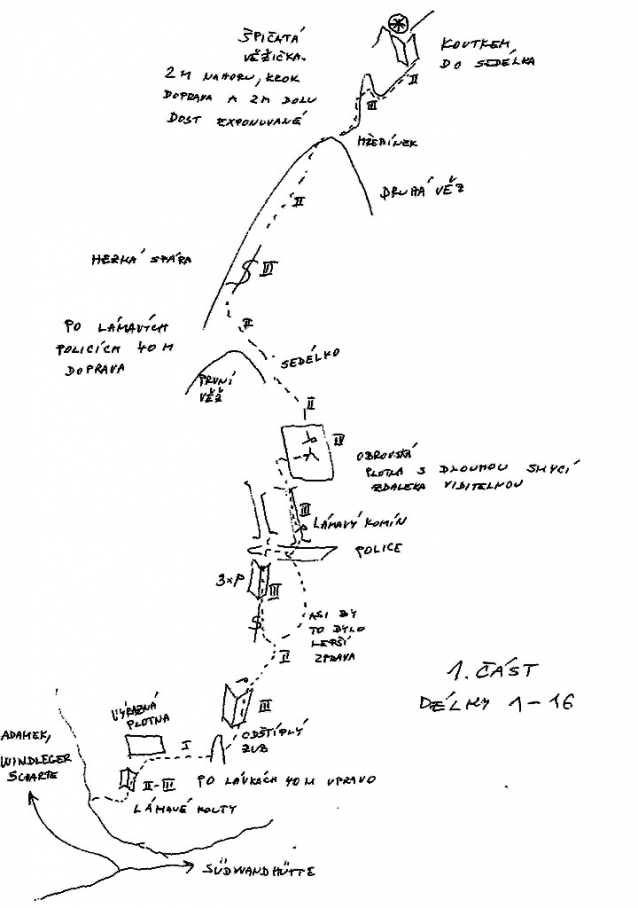 ŠPIČATÁ
VĚŽIČKA.
2 M NAHORU, KROK
DOPRAVA A 2 M DOLU
DOST EXPONOVANÉ
KOUTKEM
DO SEDÉLKA
II
III
HŘEBÍNEK
DRUHÁ VĚŽ
II
HEZKÁ SPÁRA
III
PO LÁMAVÝCH
POLICÍCH 40 M
DOPRAVA
II
SEDÉLKO
PRVNÍ
VĚŽ
II
IV
OBROVSKÁ
PLOTNA S DLOUHOU SMYCÍ
ZDALEKA VIDITELNOU
III
LÁMAVÝ KOMÍN
POLICE
3×P
III
ASI BY
TO BYLO
LEPŠÍ
ZPRAVA
II
1. ČÁST
DÉLKY 1-16
III
VÝRAZNÁ
PLOTNA
ODŠTÍPLÝ
ZUB
I
ADAMEK,
WINDLEGER
SCHARTE
II-III
PO LÁVKÁCH 40 M VPRAVO
LÁMAVÉ KOUTY
SÜDWANDHÜTTE